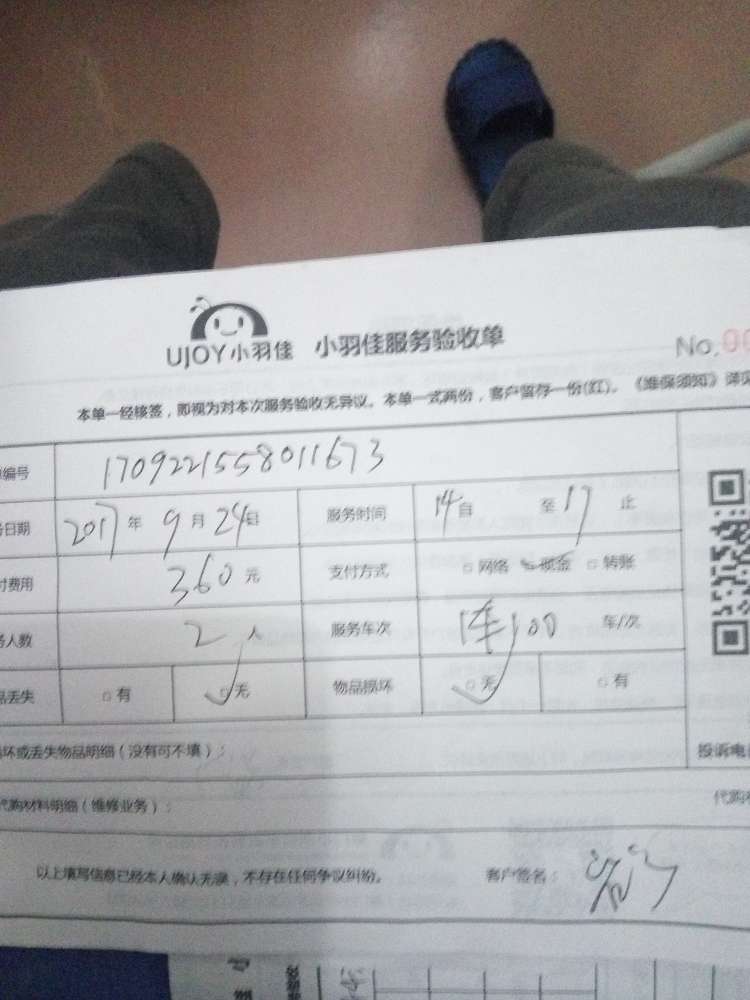 UJOY小羽佳 小羽佳服务验收单 No.00
本单一经核签，即视为对本次服务验收无异议。本单一式两份，客户留存一份(红)。《维保须知》详见
编号 1709221558011673
日期 2017年9月24日 服务时间 14自 至17止
费用 360元 支付方式 网络 现金 转账
人数 2人 服务车次 1车100 车/次
品丢失 有 无 物品损坏 无 有
坏或丢失物品明细（没有可不填）： 投诉电
代购材料明细（维修业务）： 代购
以上填写信息已经本人确认无误，不存在任何争议纠纷。 客户签名：